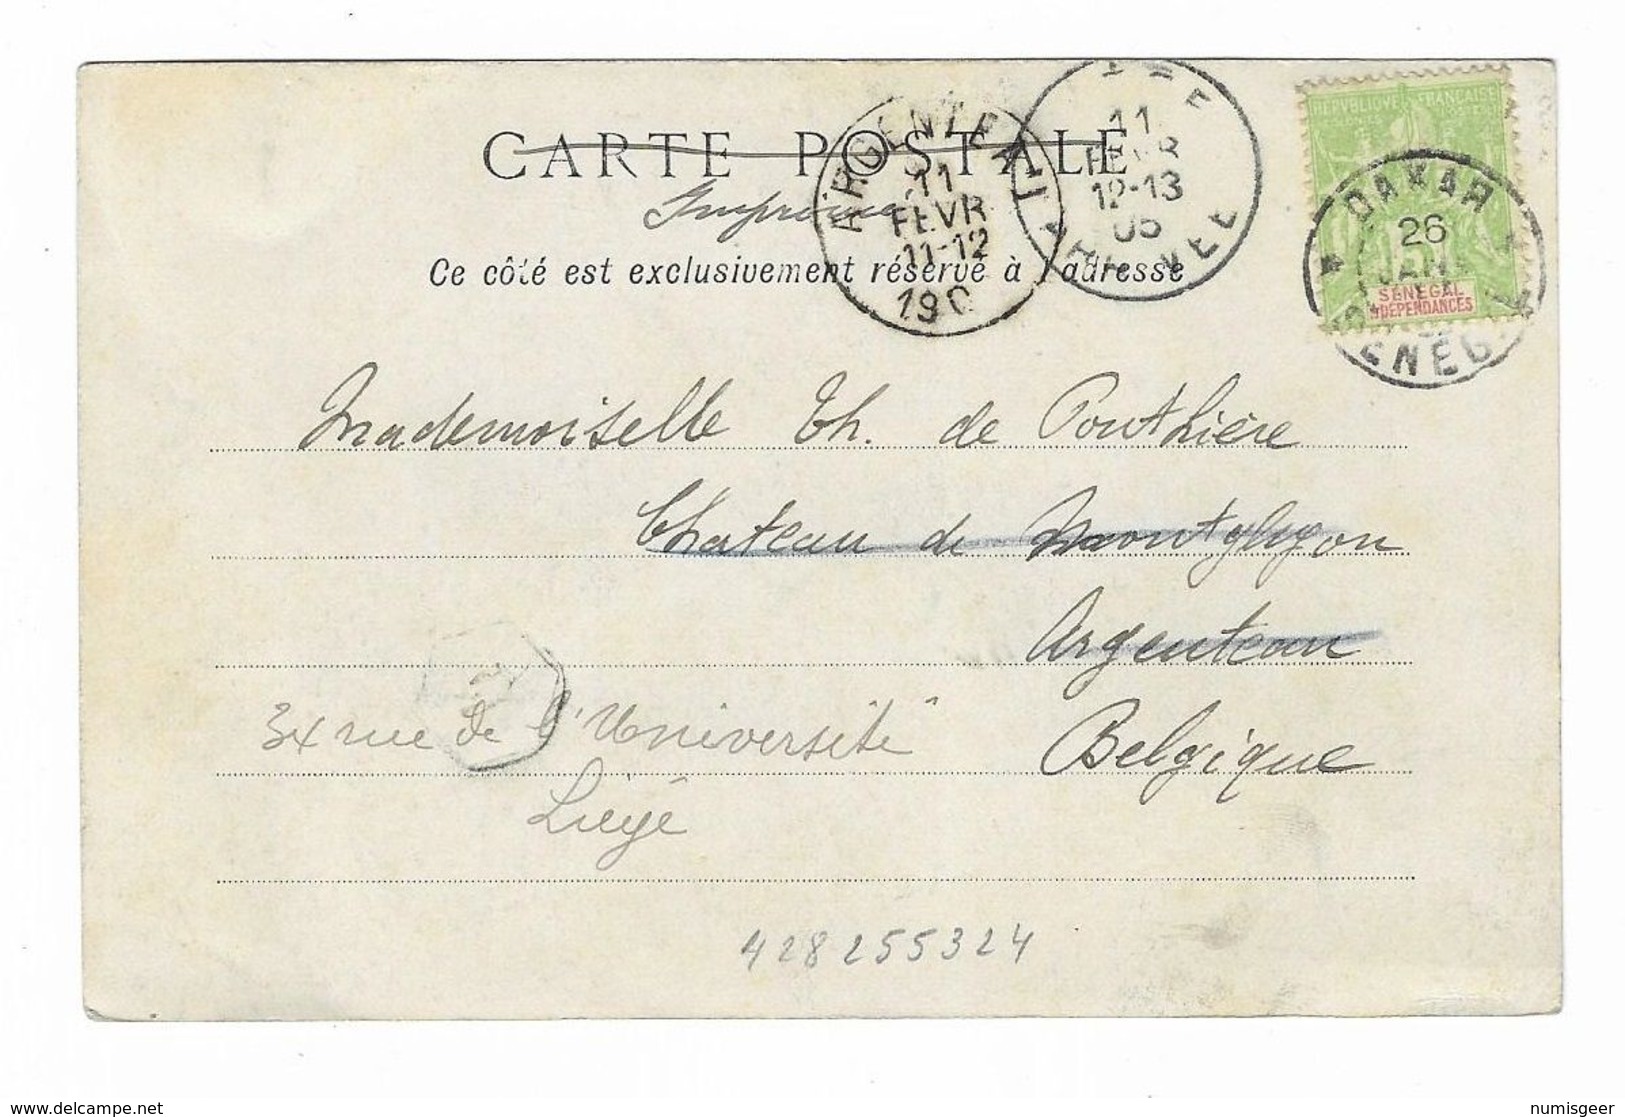 CARTE POSTALE
Imprimé
Ce côté est exclusivement réservé à l'adresse
ARGENTEAU
11
FEVR
11-12
190
11
FEVR
12-13
05
REPVBLIQVE FRANÇAISE
DAKAR
26
JANV
SENEGAL
SÉNÉGAL
DÉPENDANCES
Mademoiselle Th. de Ponthière
Chateau de Montglyon
Argenteau
Belgique
34 rue de l'Université
Liége
428255324
www.delcampe.net
numisgeer